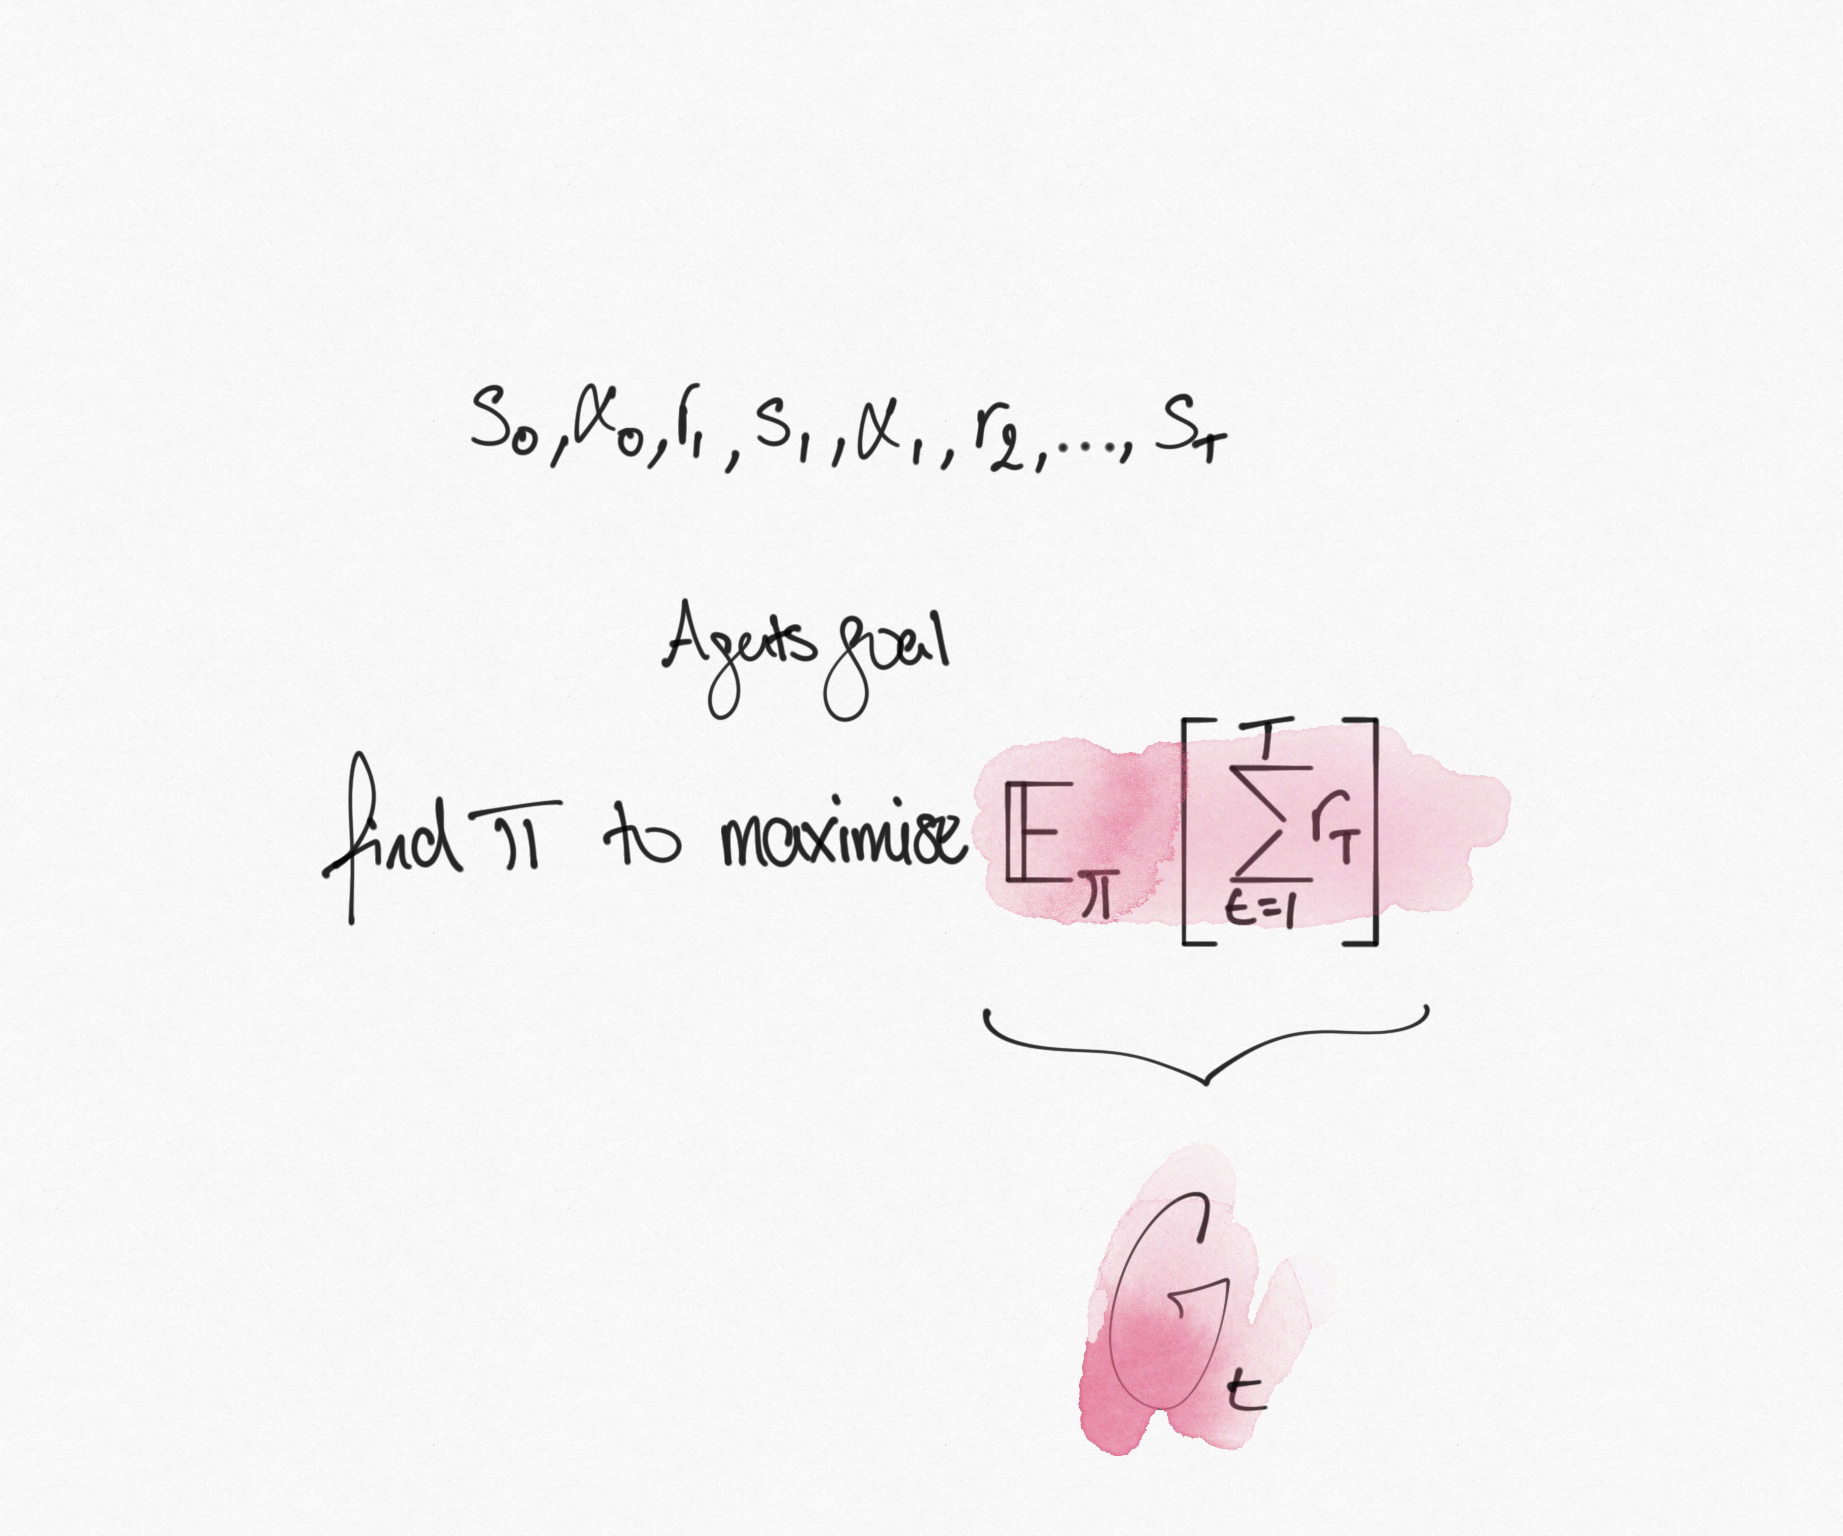 S₀, α₀, r₁, S₁, α₁, r₂, ..., S_T
Agents goal
find π to maximise 𝔼_π [ ∑_{t=1}^{T} r_T ]
G_t